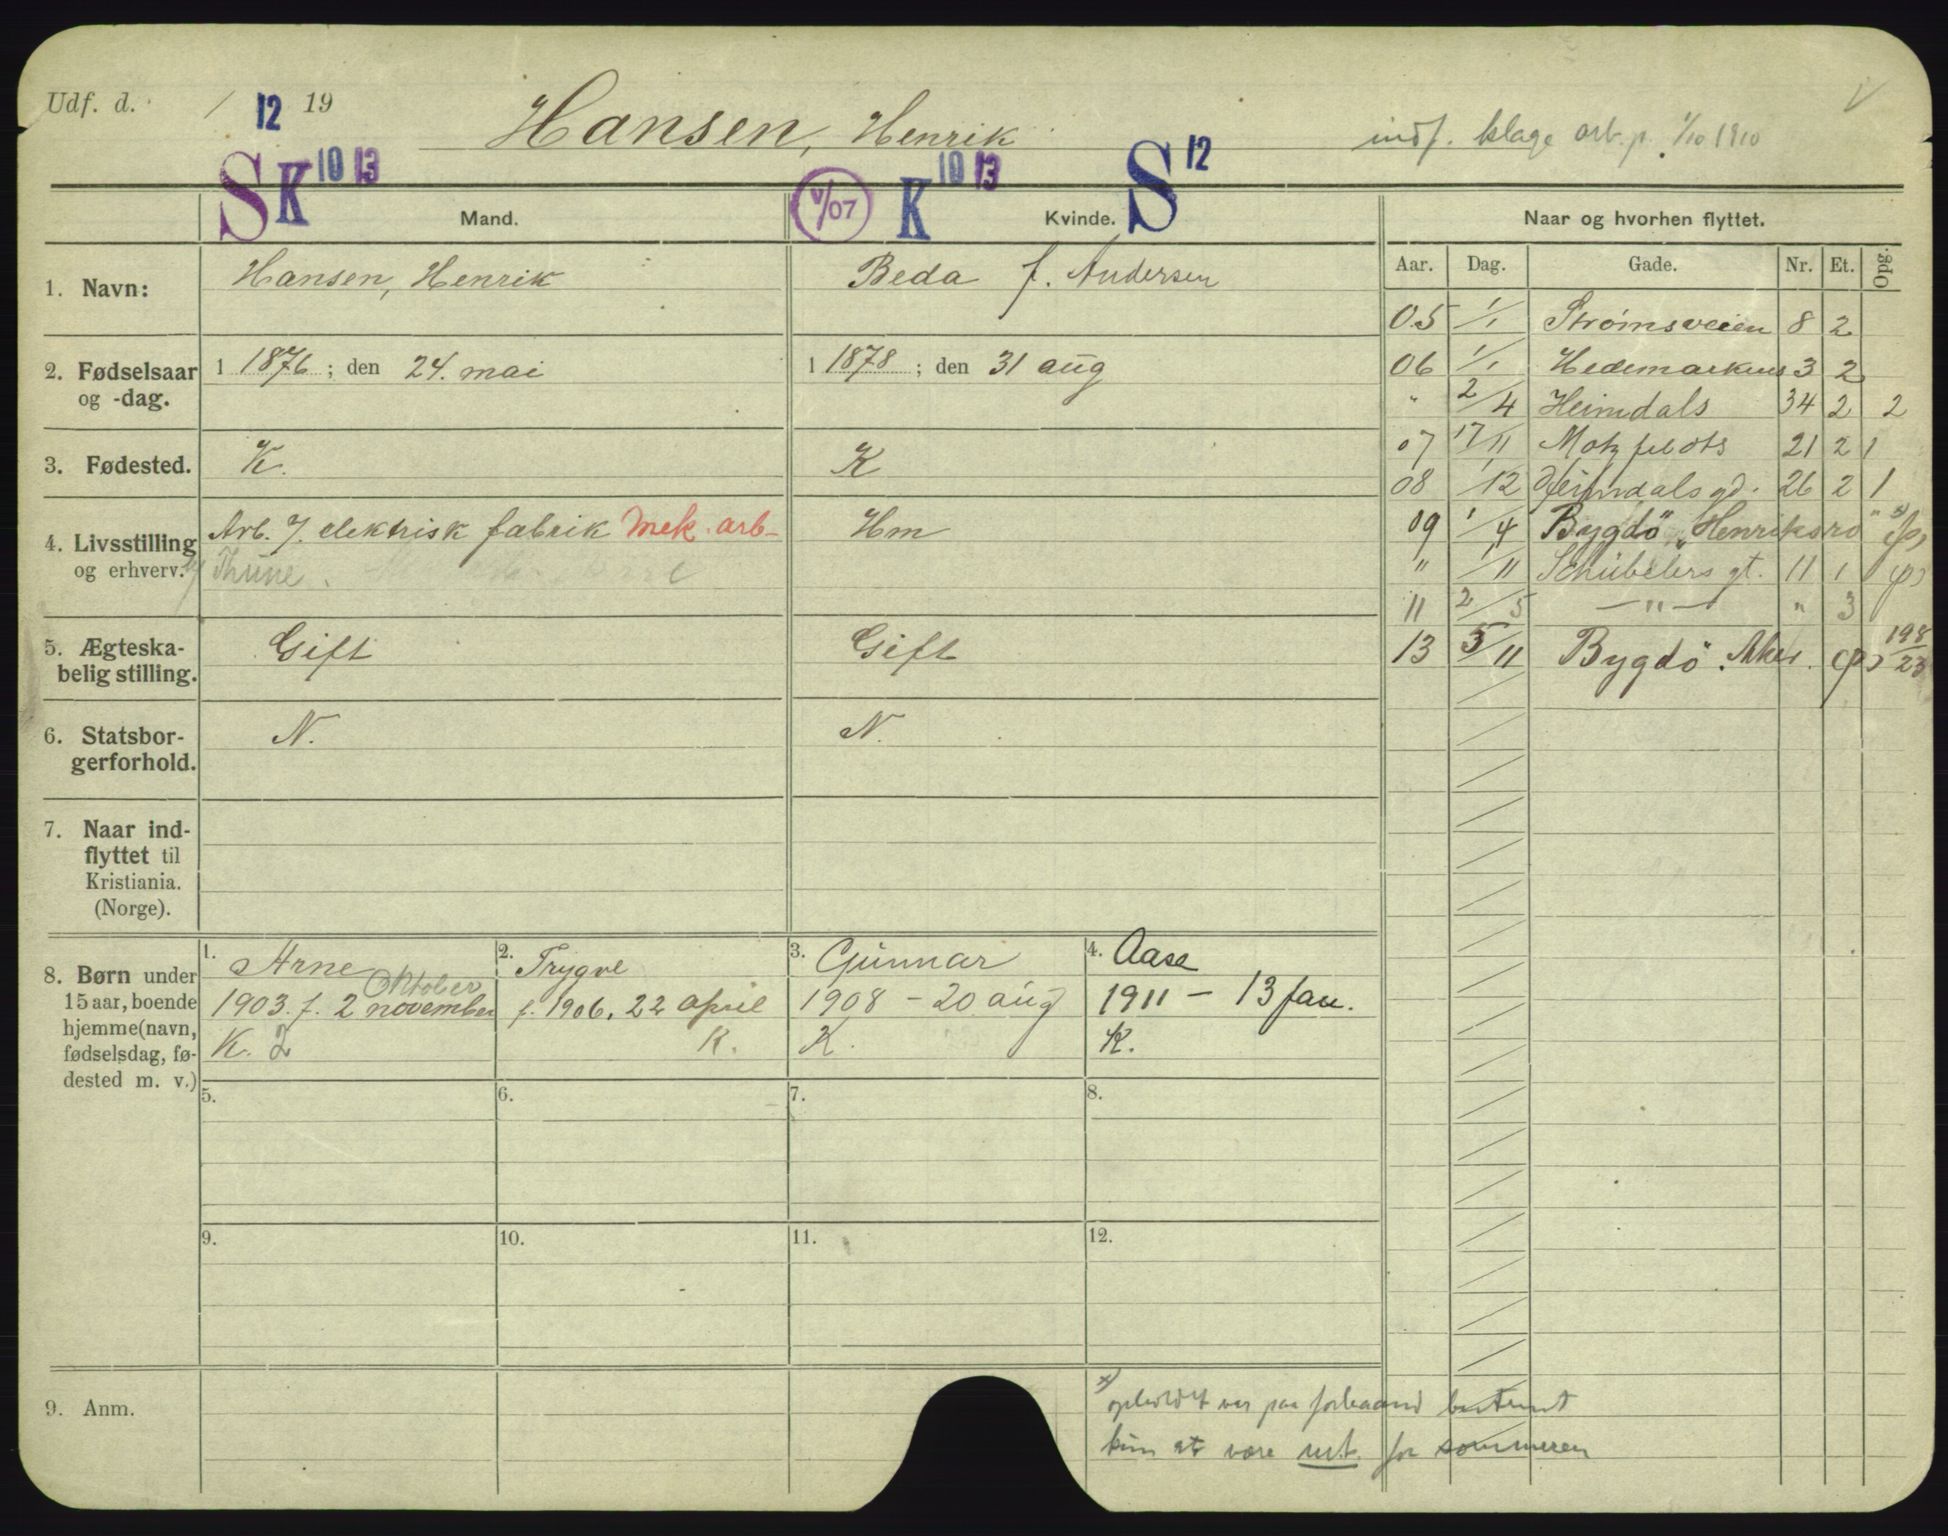 Udf. d. / 12 19
Hansen, Henrik
indf. klage arb. p. 1/10 1910
S K 10 13
V/07
K 10 13
S 12
Mand.
Kvinde.
Naar og hvorhen flyttet.
Aar. Dag. Gade. Nr. Et. Opg.
1. Navn:
Hansen, Henrik
Beda f. Andersen
2. Fødselsaar og -dag.
1 1876 ; den 24. mai
1 1878 ; den 31 aug
3. Fødested.
K.
K
4. Livsstilling og erhverv.
Arb. J. elektrisk fabrik Mek. arb-
Thune.
Hm
5. Ægteska-
belig stilling.
Gift
Gift
6. Statsbor-
gerforhold.
N.
N.
7. Naar ind-
flyttet til
Kristiania.
(Norge).
05 1/1 Strømsveien 8 2
06 1/1 Hedemarkens 3 2
" 2/4 Heimdals 34 2 2
07 17/11 Motzfeldts 21 2 1
08 1/12 Heimdals gd. 26 2 1
09 1/4 Bygdö „Henriksro" x) (p)
" 1/11 Schübelers gt. 11 1 (p)
11 2/5 —"— " 3
13 5/11 Bygdö. Aker. (p) 198/23
8. Børn under
15 aar, boende
hjemme (navn,
fødselsdag, fø-
dested m. v.)
1. Arne
Oktober
1903. f. 2 november
K. 2
2. Trygve
f. 1906. 22 april
K.
3. Gunnar
1908 - 20 aug
K.
4. Aase
1911 - 13 jan.
K.
5.
6.
7.
8.
9.
10.
11.
12.
9. Anm.
x) opholdet var paa forhaand bestemt
kun at være mt. for sommeren